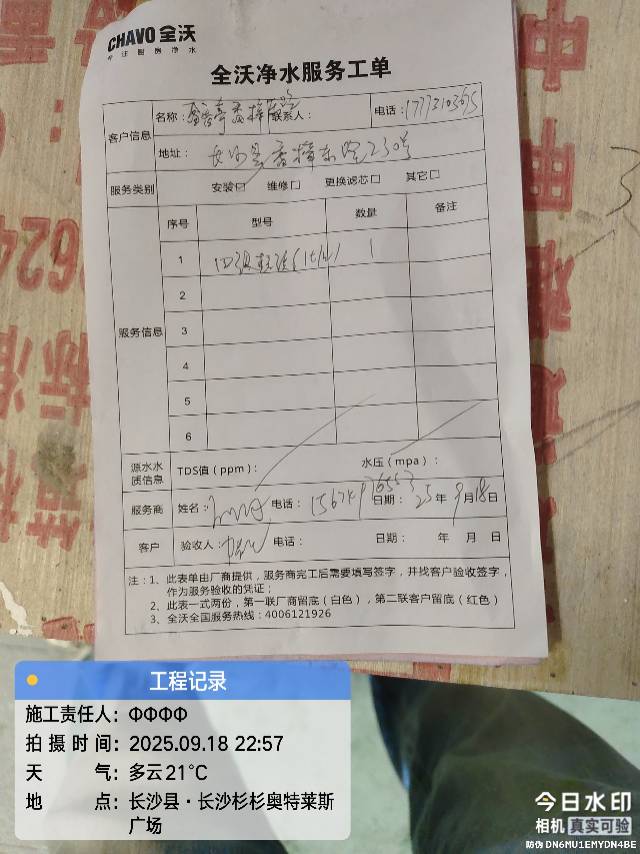 CHAVO 全沃
专注厨房净水
全沃净水服务工单
客户信息
名称： 联系人： 电话：
地址： 长沙县香樟东路230号
服务类别 安装 维修 更换滤芯 其它
服务信息
序号 型号 数量 备注
1 1
2
3
4
5
6
源水水质信息 TDS值（ppm）： 水压（mpa）：
服务商 姓名： 电话： 日期： 25年9月18日
客户 验收人： 电话： 日期： 年 月 日
注：1、此表单由厂商提供，服务商完工后需要填写签字，并找客户验收签字，
作为服务验收的凭证；
2、此表一式两份，第一联厂商留底（白色），第二联客户留底（红色）
3、全沃全国服务热线：4006121926
工程记录
施工责任人：ΦΦΦΦ
拍摄时间：2025.09.18 22:57
天气：多云21℃
地点：长沙县·长沙杉杉奥特莱斯
广场
今日水印
相机 真实可验
防伪 DN6MU1EMYDN4BE